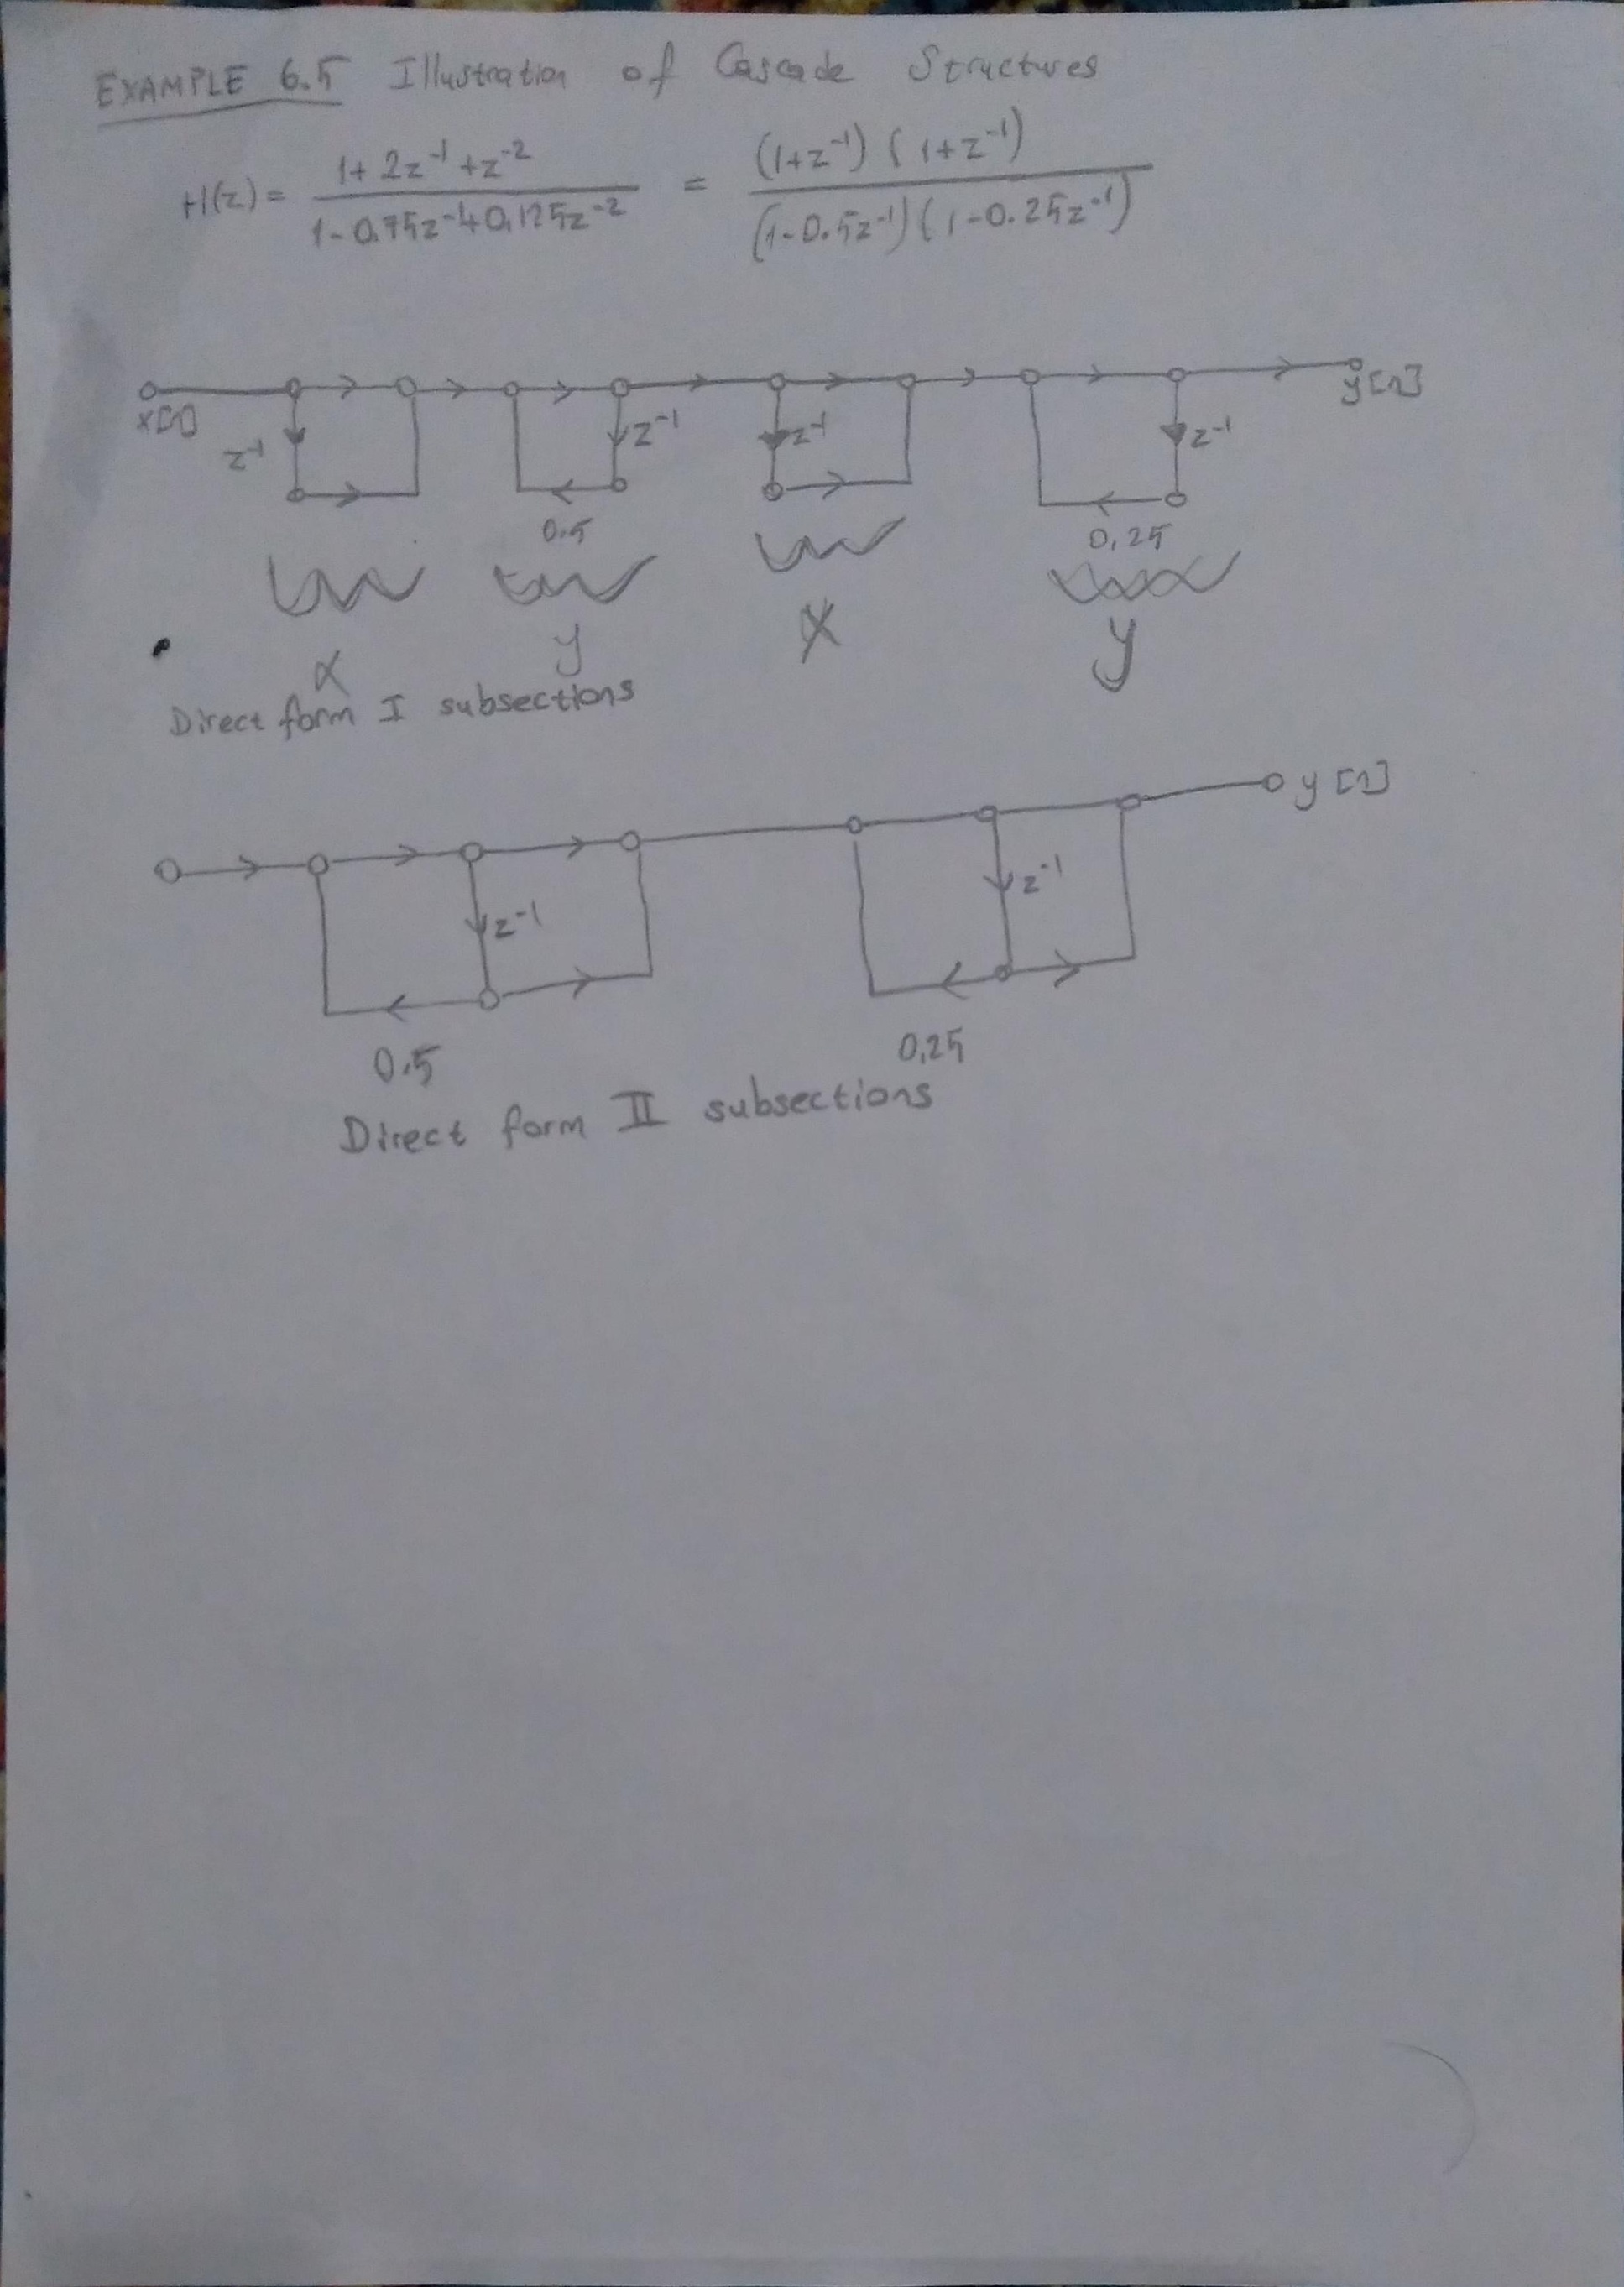 EXAMPLE 6.5 Illustration of Cascade Structures
H(z) = 1+2z⁻¹+z⁻² / 1-0,75z⁻¹+0,125z⁻² = (1+z⁻¹)(1+z⁻¹) / (1-0.5z⁻¹)(1-0.25z⁻¹)
x[n] y[n]
z⁻¹ z⁻¹ z⁻¹ z⁻¹
0.5 0,25
x y x y
Direct form I subsections
y[n]
z⁻¹ z⁻¹
0.5 0,25
Direct form II subsections